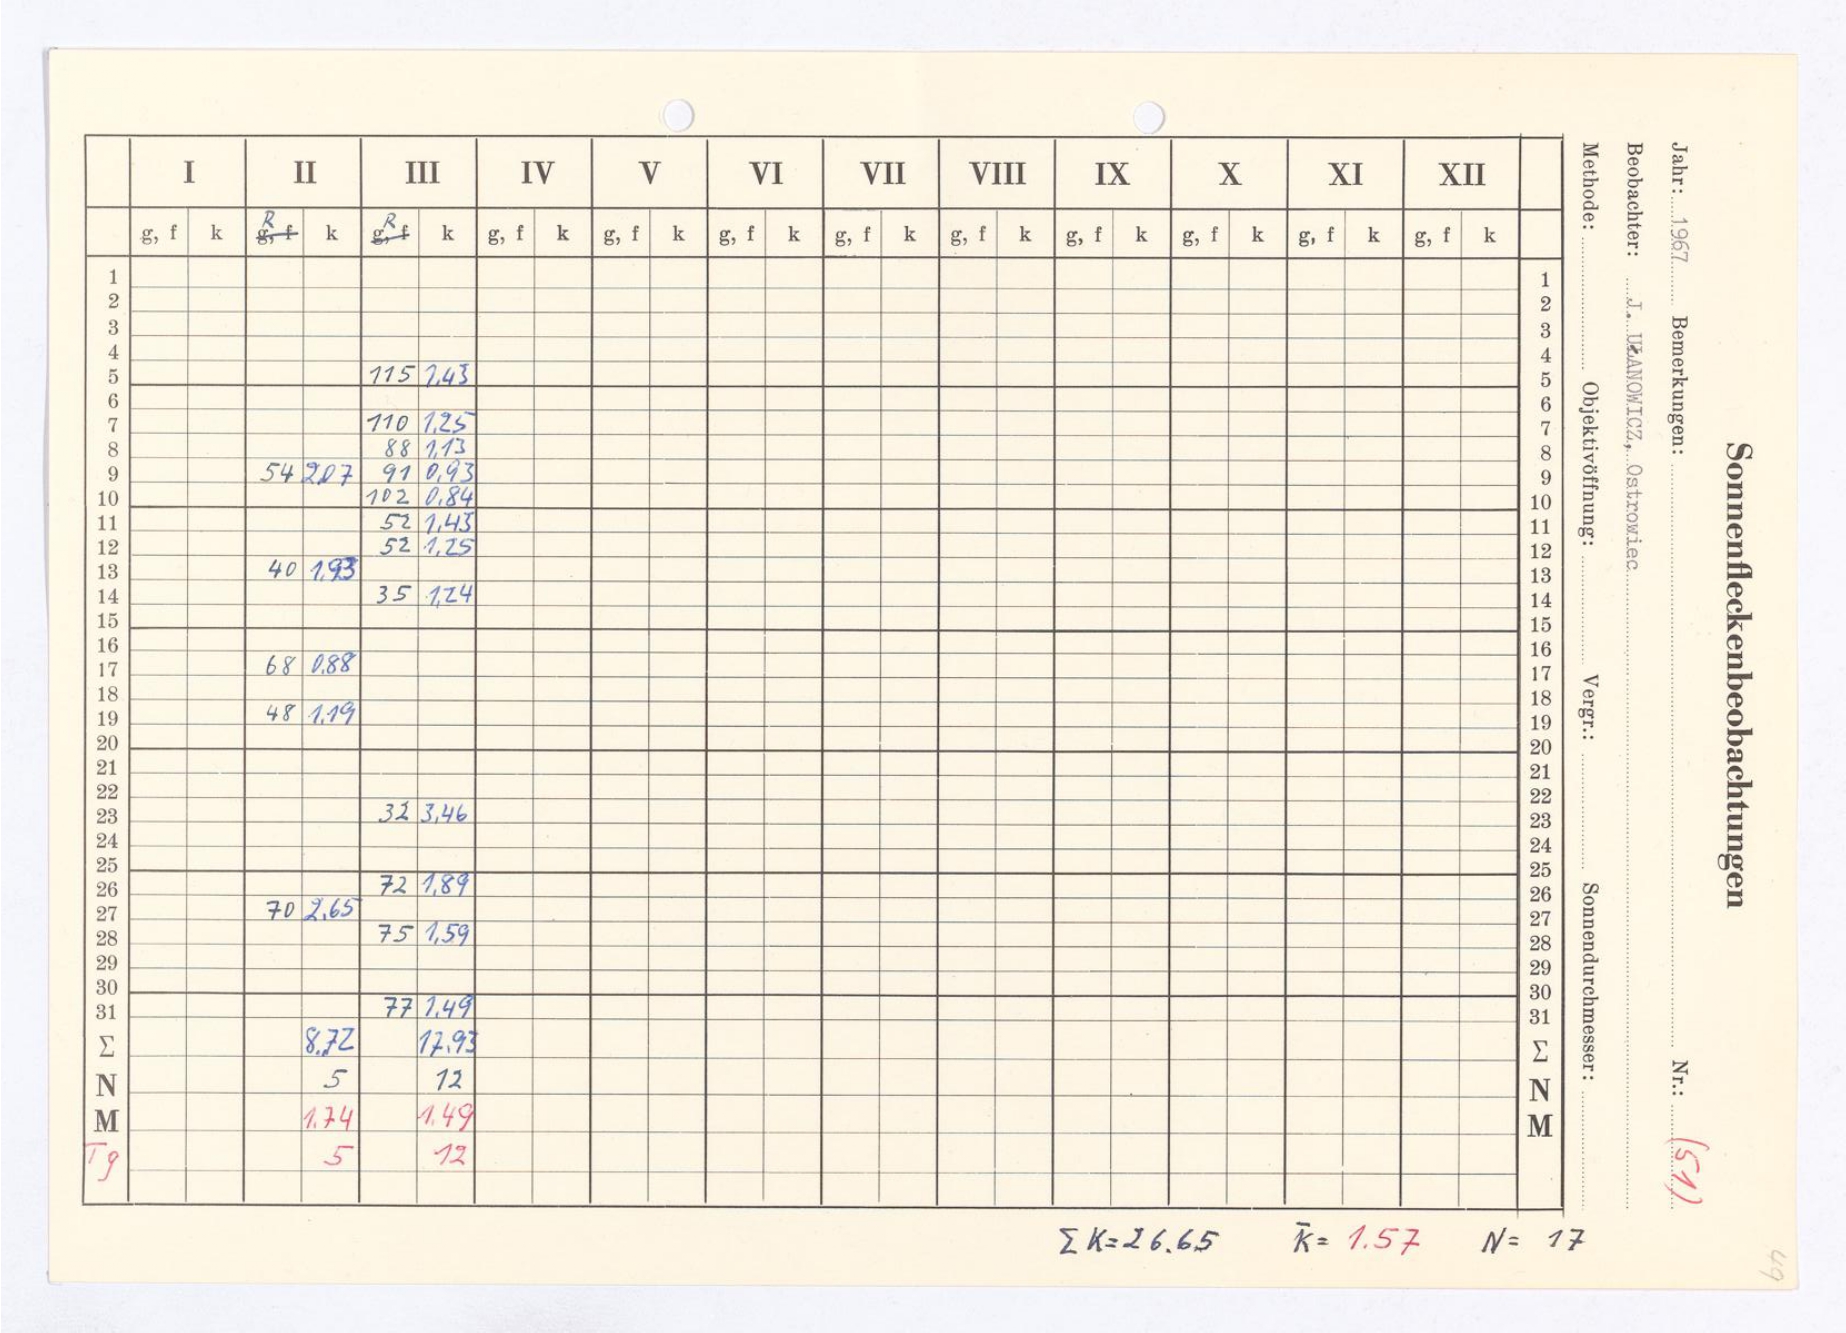 Sonnenfleckenbeobachtungen
Jahr: 1967 Bemerkungen: Nr.: (51)
Beobachter: J. UŁANOWICZ, Ostrowiec
Methode: Objektivöffnung: Vergr.: Sonnendurchmesser:
I II III IV V VI VII VIII IX X XI XII
g, f k R g, f k R g, f k g, f k g, f k g, f k g, f k g, f k g, f k g, f k g, f k g, f k
1 1
2 2
3 3
4 4
5 115 1,43 5
6 6
7 110 1,25 7
8 88 1,13 8
9 54 2,07 91 0,93 9
10 102 0,84 10
11 52 1,43 11
12 52 1,25 12
13 40 1,93 13
14 35 1,24 14
15 15
16 16
17 68 0,88 17
18 18
19 48 1,19 19
20 20
21 21
22 22
23 32 3,46 23
24 24
25 25
26 72 1,89 26
27 70 2,65 27
28 75 1,59 28
29 29
30 30
31 77 1,49 31
Σ 8,72 17,93 Σ
N 5 12 N
M 1.74 1.49 M
Tg 5 12
Σ K= 26.65 k̄= 1.57 N= 17
49